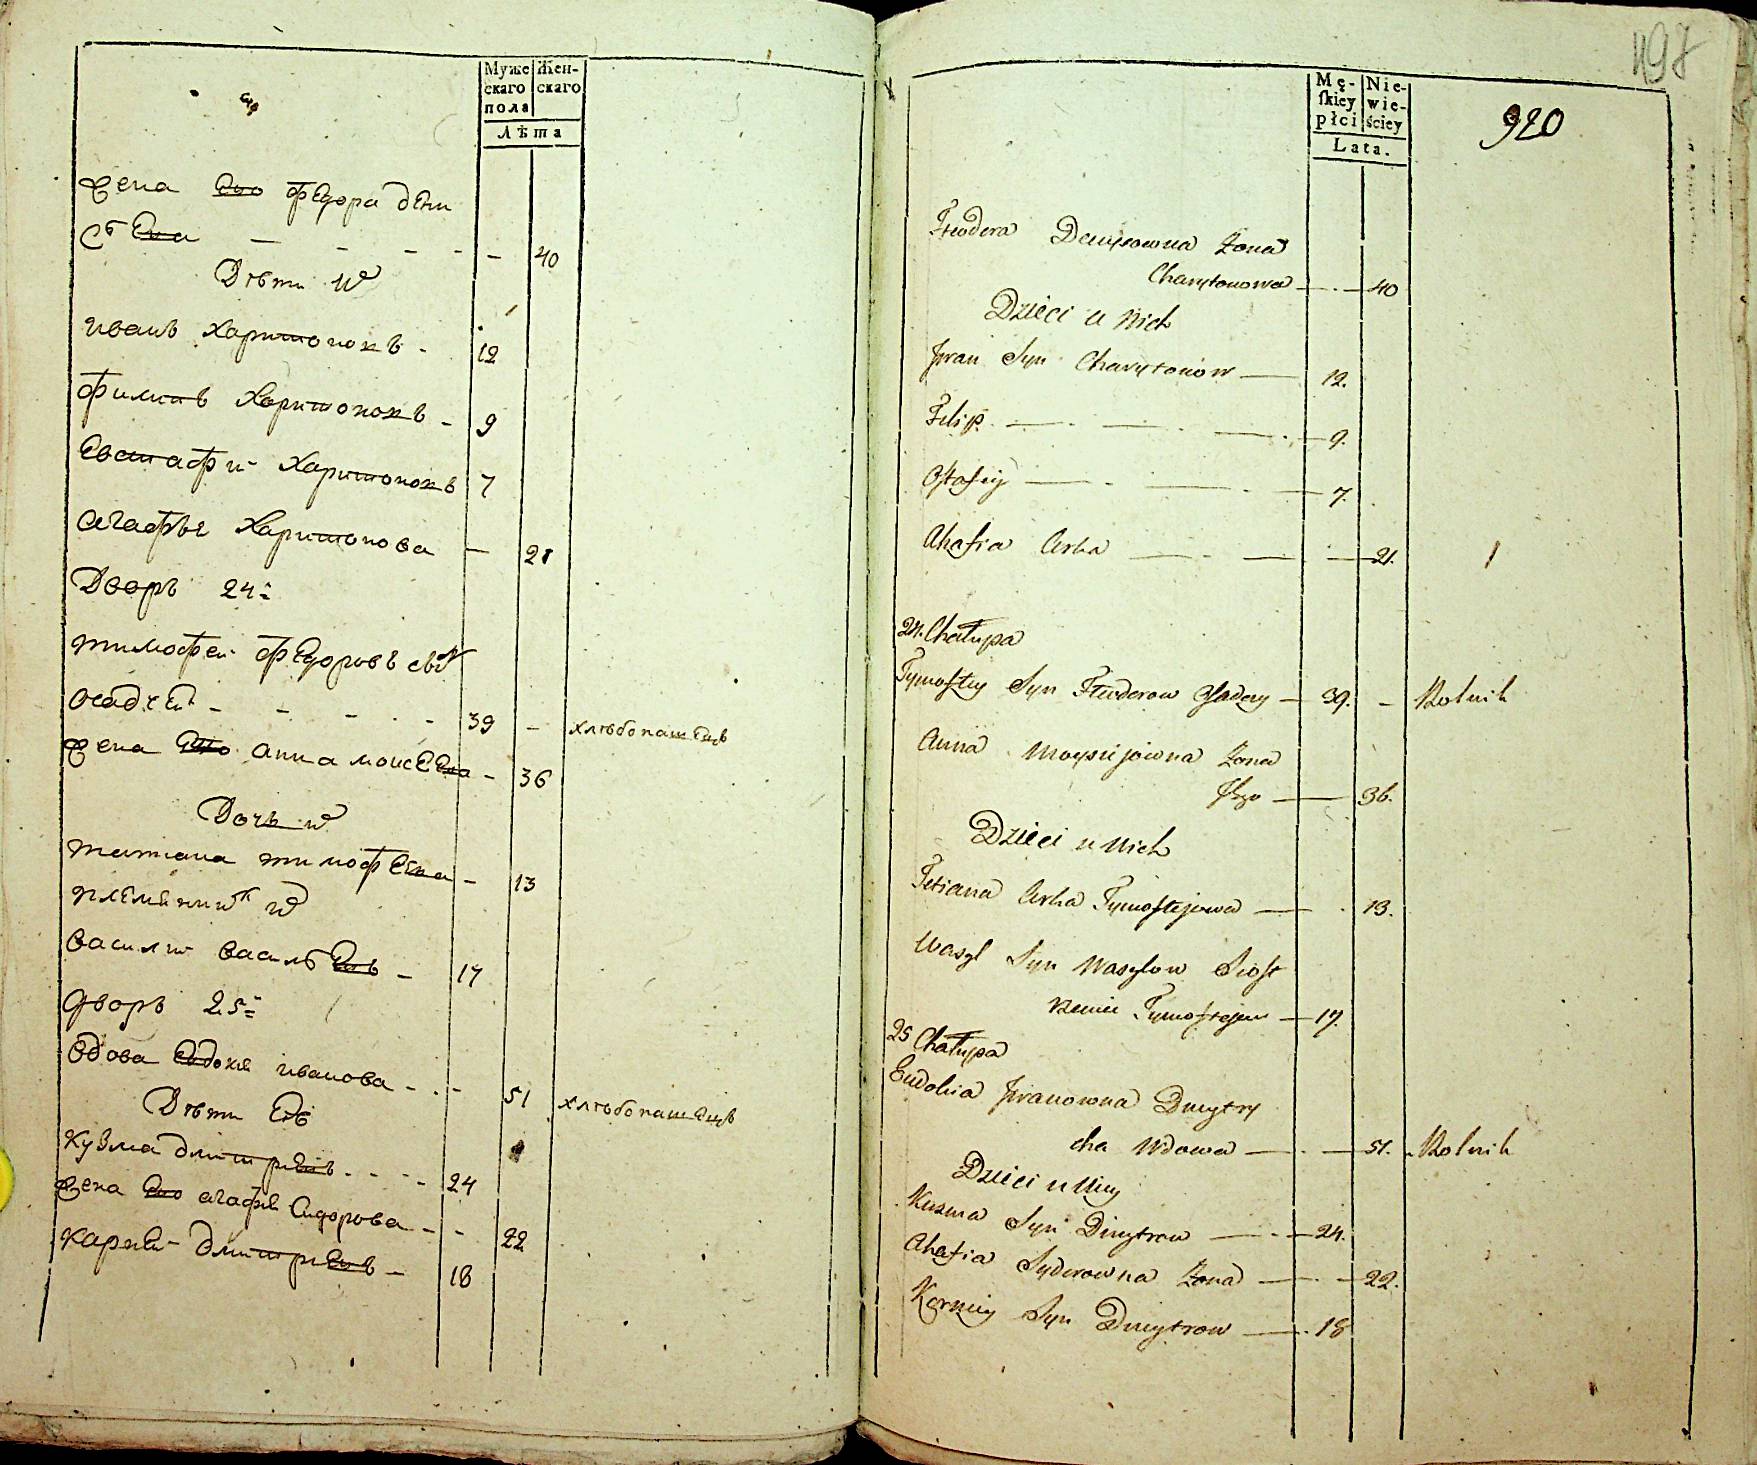 Муже
скаго
пола
Жен-
скаго
Лѣта
жена его федора дени
сѣева - - - - - 40
Дѣти их
иванъ харитоновъ - 12
филипъ харитоновъ - 9
Евстафи харитоновъ 7
агафья харитонова - 21
Дворъ 24й
тимофей федоровъ снъ
осадчей - - - - - 39 - хлѣбопашецъ
жена его анна моисеева - 36
Дочь их
татиана тимофеева - 13
племянник их
василий василѣевъ - 17
дворъ 25й
вдова евдокия иванова - - - 51 хлѣбопашецъ
Дѣти Ее
кузма дмитриевъ - - - - 24
жена его агафия сидорова - - 22
карней дмитриевъ - 18
498
Mę-
skiey
płci
Nie-
wie-
ściey
Lata.
920
Feodora Denysowna Zona
Charytonowa - - - 40
Dzieci u Nich
Jwan Syn Charytonow - 12.
Filip - - - 9.
Ostafiy - - - 7.
Ahafia Corka - - - 21.
24. Chałupa
Tymoftey Syn Fedorow Osadczy - 39. - Rolnik
Anna Moysiejowna Zona
Jego - 36.
Dzieci u Nich
Tetiana Corka Tymoftejowa - 13.
Wasyl Syn Wasylow Siost
rzeniec Tymofteja - 17.
25 Chałupa
Eudokia Jwanowna Dmytry
cha Wdowa - - 51. - Rolnik
Dzieci u Niey
Kuzma Syn Dmytrow - - 24.
Ahafia Sydorowna Zona - - 22.
Korniey Syn Dmytrow - 18